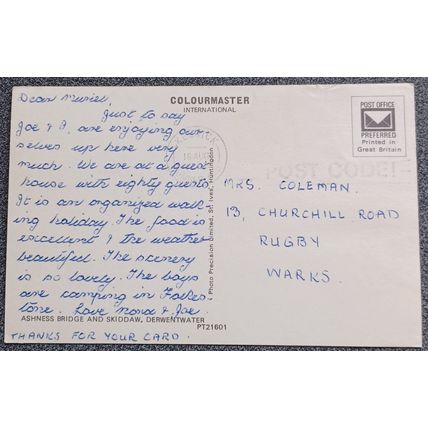 Dear Muriel,
Just to say
Joe & I, are enjoying our
selves up here very
much. We are at a guest
house with eighty guests
It is an organized walk
ing holiday. The food is
excellent & the weather
beautiful. The scenery
is so lovely. The boys
are camping in Folkes
tone. Love Nora & Joe.
THANKS FOR YOUR CARD.
ASHNESS BRIDGE AND SKIDDAW, DERWENTWATER
PT21601
COLOURMASTER
INTERNATIONAL
Photo Precision Limited, St. Ives, Huntingdon
POST OFFICE
PREFERRED
Printed in
Great Britain
POST CODE!
MRS. COLEMAN.
13, CHURCHILL ROAD
RUGBY
WARKS.